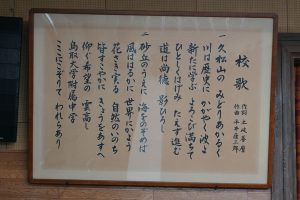 校歌
作詞 土岐善麿
作曲 平井康三郎
一 久松山の みどりあかるく
川は歴史に かがやく波よ
新たに学ぶ よろこび満ちて
ひとしくはげみ たえず進む
道は尚徳 影ひろし
二 砂丘のうえに 海をのぞめば
風ははるかに 世界にかよう
花さき実る 自然のいのち
皆すこやかに きょうをあすへ
仰ぐ希望の 雲高し
鳥取大学 附属中学
ここにこぞりて われらあり